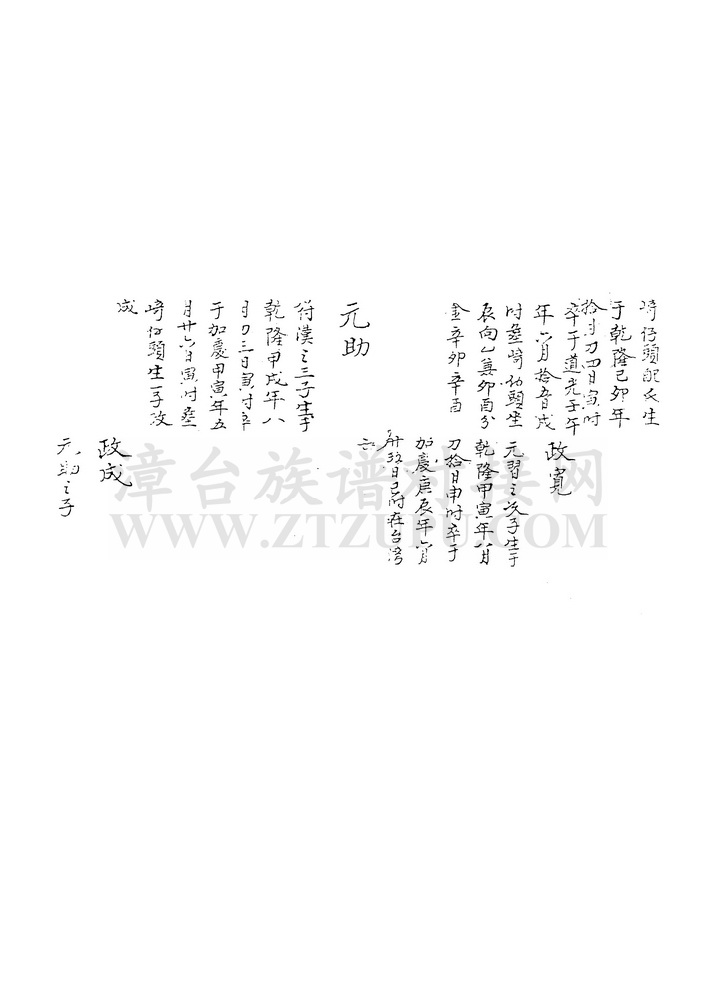 崎仔頭配氏生
于乾隆己卯年
拾月刀四日寅时
卒于道光壬午
年六月拾吾日戌
时塟崎仔頭坐
辰向乙兼卯酉分
金辛卯辛酉
政寛
元習之次子生于
乾隆甲寅年八月
刀拾日申时卒于
加慶庚辰年六月
廿玖日巳时在台湾
亡
元助
符漢之三子生于
乾隆甲戌年八
月刀三日寅时卒
于加慶甲寅年五
月廿六日寅时塟
崎仔頭生一子政
成
政成
元助之子
漳台族谱对接网
WWW.ZTZUPU.COM